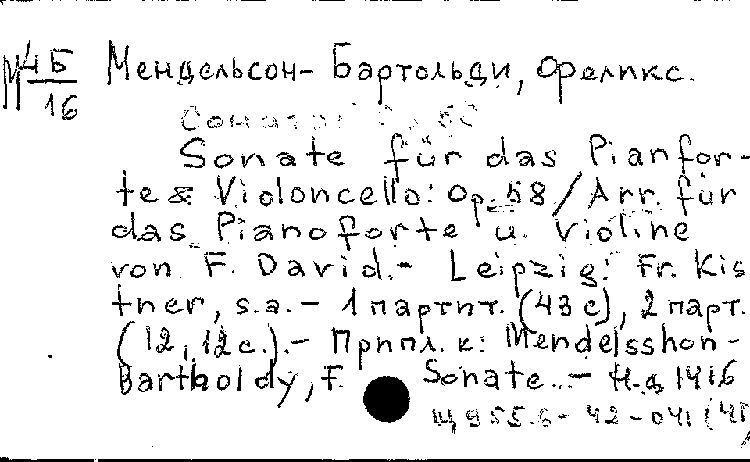 М 45/16 Мендельсон-Бартольди, Феликс.
Соната Op. 58
Sonate für das Pianfor-
te & Violoncello: Op. 58 / Arr. für
das Pianoforte u. Violine
von F. David.- Leipzig: Fr. Kis
tner, s.a.- 1 партит. (43 с), 2 парт.
(12, 12 с.).- Припл. к: Mendelsshon-
Bartholdy, F. Sonate...- Н.д. 1416
Щ 955.6-42-041 (4І)